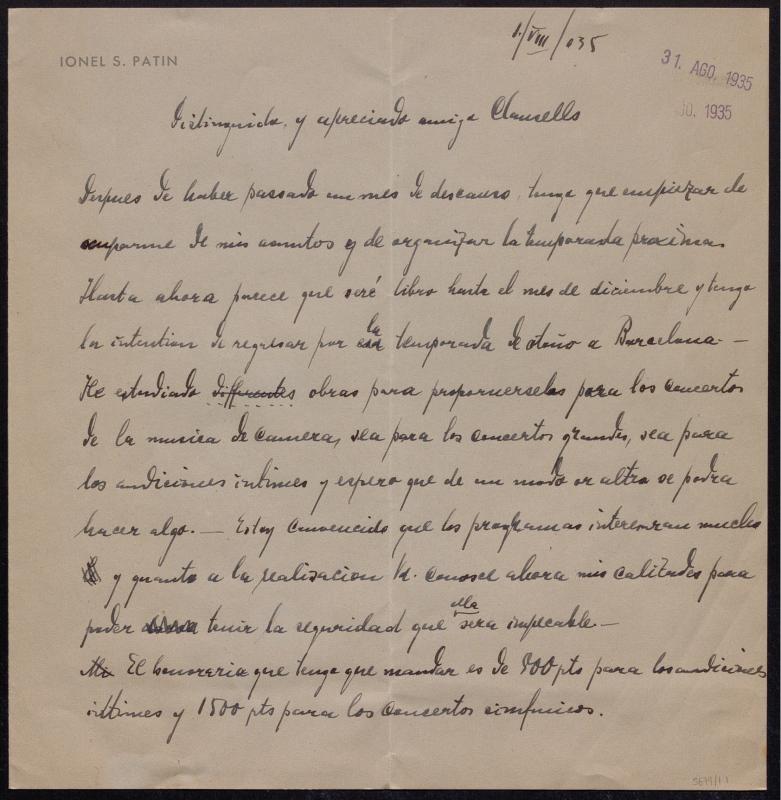 1/VIII/035
IONEL S. PATIN
31. AGO. 1935
JO. 1935
Distinguido, y apreciado amigo Clausells
Despues de haber passado un mes de descanso, tengo que empiezar de
ocuparme de mis asuntos y de organizar la temporada proxima.
Hasta ahora parece que seré libro hasta el mes de diciembre y tengo
la intention de regresar por la temporada de otoño a Barcelona. —
He estudiado differentes obras para propornerselas para los concertos
de la musica de camera, sea para los concertos grandes, sea para
los audiciones intimes y espero que de un modo or altro se podra
hacer algo. — Estoy convencido que los programas interesaran mucho
y quanto a la realizacion Vd. conosce ahora mis calitades para
poder tenir la seguridad que ella sera impecable. —
El honorario que tengo que mandar es de 800 pts para los audiciones
intimes y 1500 pts para los concertos simfonicos.